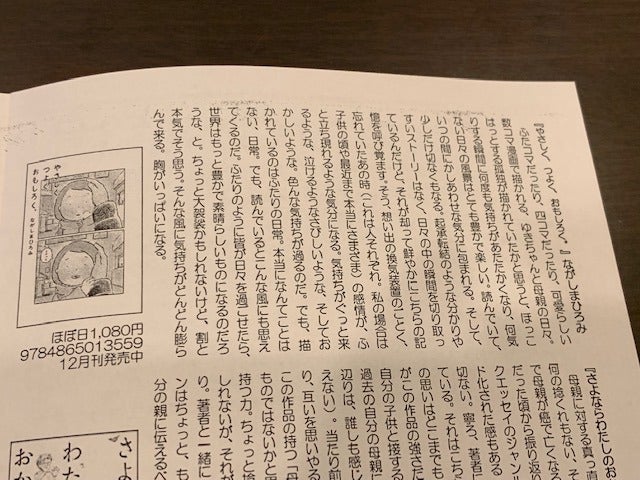 『やさしく、つよく、おもしろく。』ながしまひろみ
ふたコマだったり、四コマだったり、可愛らしい
数コマ漫画で描かれる、ゆきちゃんと母親の日々。
はっとする孤独が描かれていたかと思うと、ほっこ
りする瞬間に何度も気持ちがあたたかくなり、何気
ない日々の風景はとても豊かで楽しい。読んでいて、
いつの間にかしあわせな気分に包まれる。そして、
少しだけ切なくもなる。起承転結のような分かりや
すいストーリーはなく、日々の中の瞬間を切り取っ
ているんだけど、それが却って鮮やかにこちらの記
憶を呼び覚ます。そう、想い出の換気装置のごとく、
忘れていたあの時（これは人それぞれ。私の場合は
子供の頃や最近まで本当にさまざま）の感情が、ふ
と立ち現れるような気分になる。気持ちがぐっと来
るような、泣けるようなさびしいような、そしてお
かしいような。色んな気持ちが過るのだ。でも、描
かれているのはふたりの日常。本当になんてことは
ない、日常。でも、読んでいるとこんな風にも思え
てくるのだ。ふたりのように皆が日々を過ごせたら、
世界はもっと豊かで素晴らしいものになるのだろ
うな、と。ちょっと大袈裟かもしれないけど、割と
本気でそう思う。そんな風に気持ちがどんどん膨ら
んで来る。胸がいっぱいになる。
やさしく、
つよく、
おもしろく。
ながしまひろみ
ほぼ日1,080円
9784865013559
12月刊発売中
『さよならわたしのお
母親に対する真っ直
何の捻くれもない、そ
で母親が癌で亡くなる
だった頃から振り返り
クエッセイのジャン
ド化された感もある
ている。それはこち
切ない。寧ろ、著者
の思いはどこまでも
がこの作品の強さだ
自分の子供と接する
過去の自分の母親に
辺りは、誰しも感じ
えない）。当たり前
り、互いを思いやる
この作品の持つ「母
ものではないかと思
持つ力。ちょっと捻
しれないが、それが
り。著者と一緒に
ンはちょっと、も
分の親に伝えるべ
さよ
わた
おか